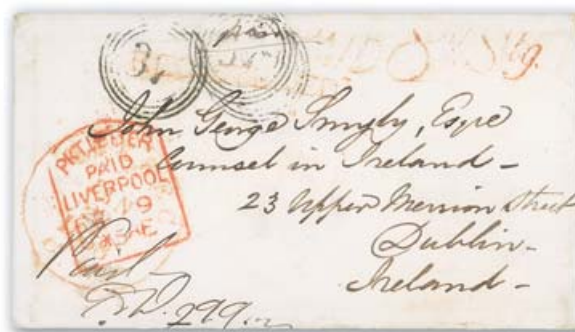 paid
37
PAID 8
John George Smyly, Esqre
Counsel in Ireland -
23 Upper Merrion Street
Dublin -
Ireland -
PKT. LETTER
PAID
LIVERPOOL
Paid
299